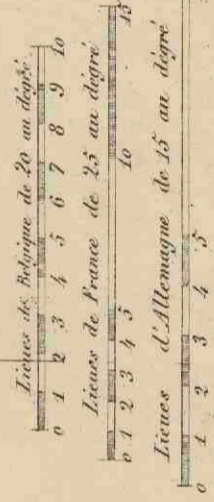 Lieues de Belgique de 20 au dégré.
0 1 2 3 4 5 6 7 8 9 10
Lieues de France de 25 au dégré
0 1 2 3 4 5 10 15
Lieues d'Allemagne de 15 au dégré
0 1 2 3 4 5